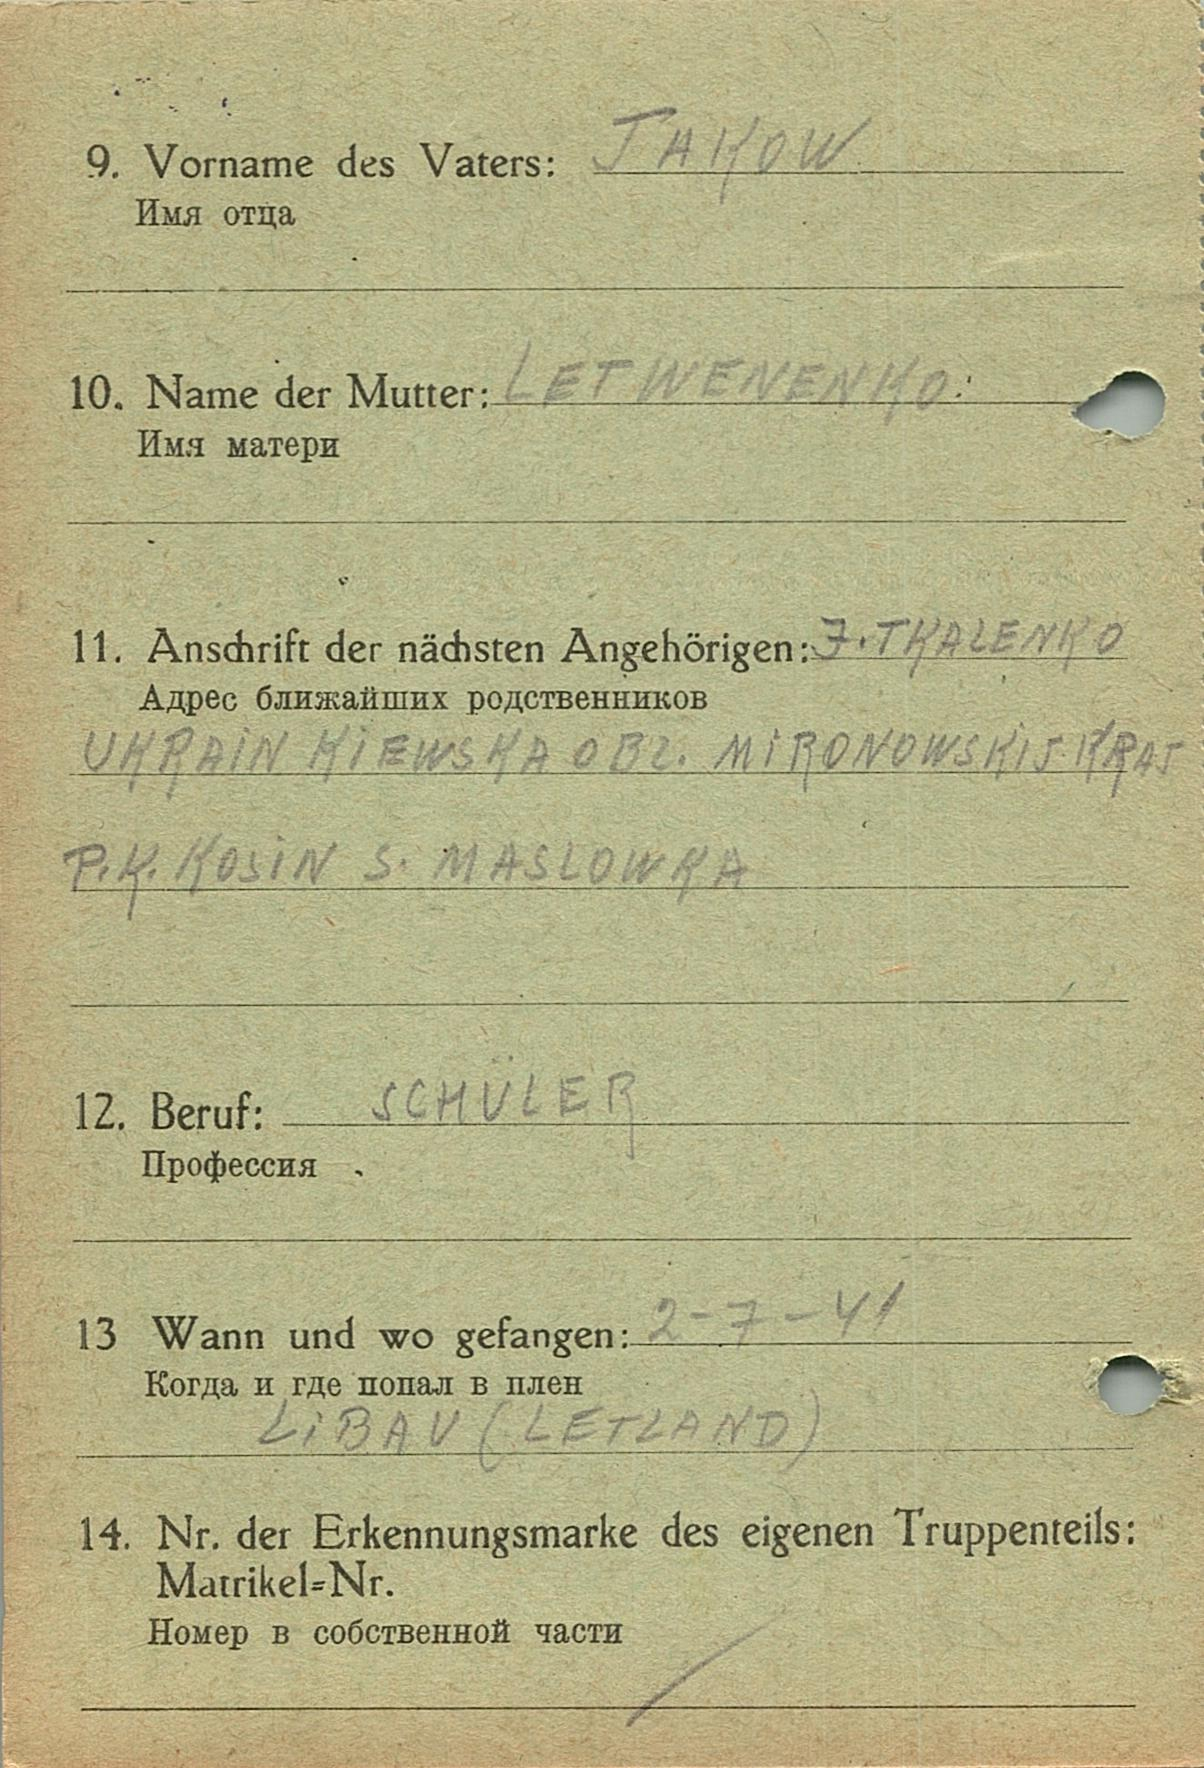 9. Vorname des Vaters: JAKOW
Имя отца
10. Name der Mutter: LETWENENKO
Имя матери
11. Anschrift der nächsten Angehörigen: J. TKALENKO
Адрес ближайших родственников
UKRAIN KIEWSKA OBL. MIRONOWSKIJ KRAJ
P.K. KOSIN S. MASLOWKA
12. Beruf: SCHÜLER
Профессия
13 Wann und wo gefangen: 2-7-41
Когда и где попал в плен
LIBAU (LETLAND)
14. Nr. der Erkennungsmarke des eigenen Truppenteils:
Matrikel=Nr.
Номер в собственной части